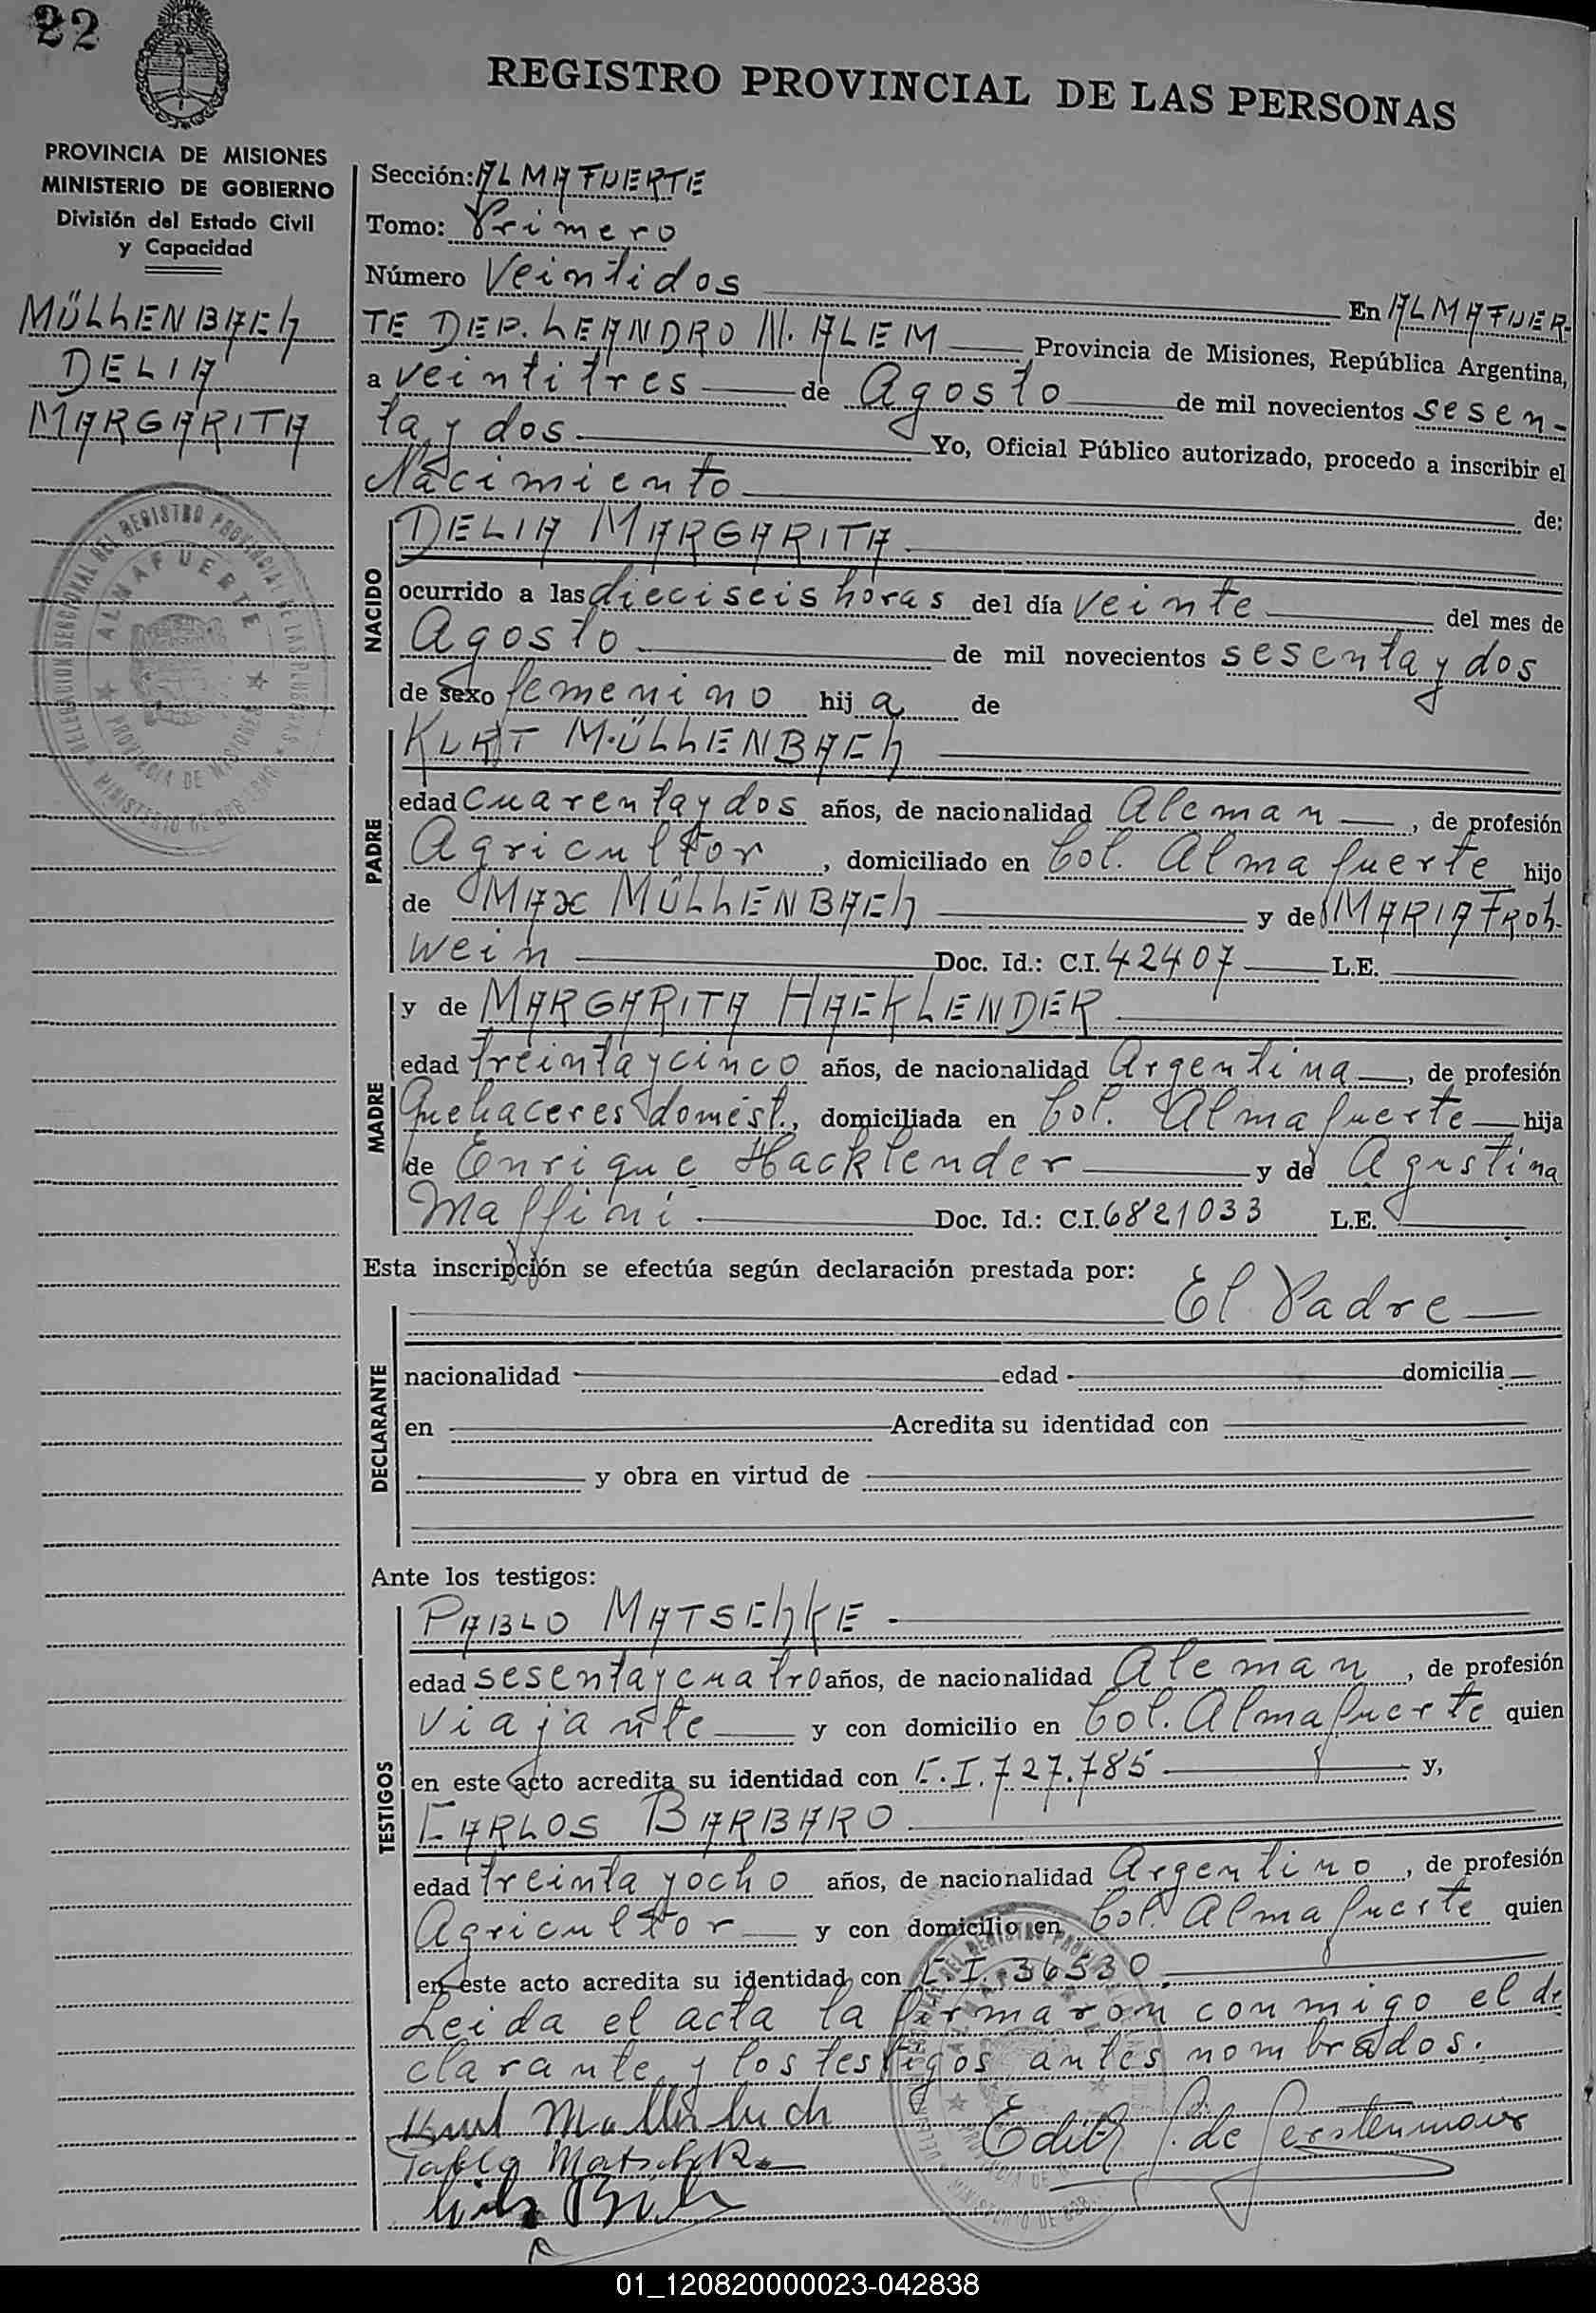 22
REGISTRO PROVINCIAL DE LAS PERSONAS
PROVINCIA DE MISIONES
MINISTERIO DE GOBIERNO
División del Estado Civil
y Capacidad
MÜLLENBACH
DELIA
MARGARITA
Sección: ALMAFUERTE
Tomo: Primero
Número Veintidos En ALMAFUER-
TE DEP. LEANDRO N. ALEM Provincia de Misiones, República Argentina,
a veintitres de Agosto de mil novecientos sesen-
ta y dos Yo, Oficial Público autorizado, procedo a inscribir el
Nacimiento de:
NACIDO
DELIA MARGARITA
ocurrido a las dieciseis horas del día veinte del mes de
Agosto de mil novecientos sesenta y dos
de sexo femenino hij a de
PADRE
KURT MÜLLENBACH
edad cuarenta y dos años, de nacionalidad Aleman, de profesión
Agricultor, domiciliado en Col. Almafuerte hijo
de MAX MÜLLENBACH y de MARIA FROH-
wein Doc. Id.: C.I. 42407 L.E.
MADRE
y de MARGARITA HACKLENDER
edad treinta y cinco años, de nacionalidad Argentina, de profesión
Quehaceres domést., domiciliada en Col. Almafuerte hija
de Enrique Hacklender y de Agustina
Maffini Doc. Id.: C.I. 6821033 L.E.
Esta inscripción se efectúa según declaración prestada por:
El Padre
DECLARANTE
nacionalidad edad domicilia
en Acredita su identidad con
y obra en virtud de
Ante los testigos:
TESTIGOS
PABLO MATSCHKE
edad sesenta y cuatro años, de nacionalidad Aleman, de profesión
viajante y con domicilio en Col. Almafuerte quien
en este acto acredita su identidad con C.I. 727.785 y,
CARLOS BARBARO
edad treinta y ocho años, de nacionalidad Argentino, de profesión
Agricultor y con domicilio en Col. Almafuerte quien
en este acto acredita su identidad con C.I. 36530.
Leida el acta la firmaron conmigo el de
clarante y los testigos antes nombrados.
Pablo Matschke
Edith
01_120820000023-042838